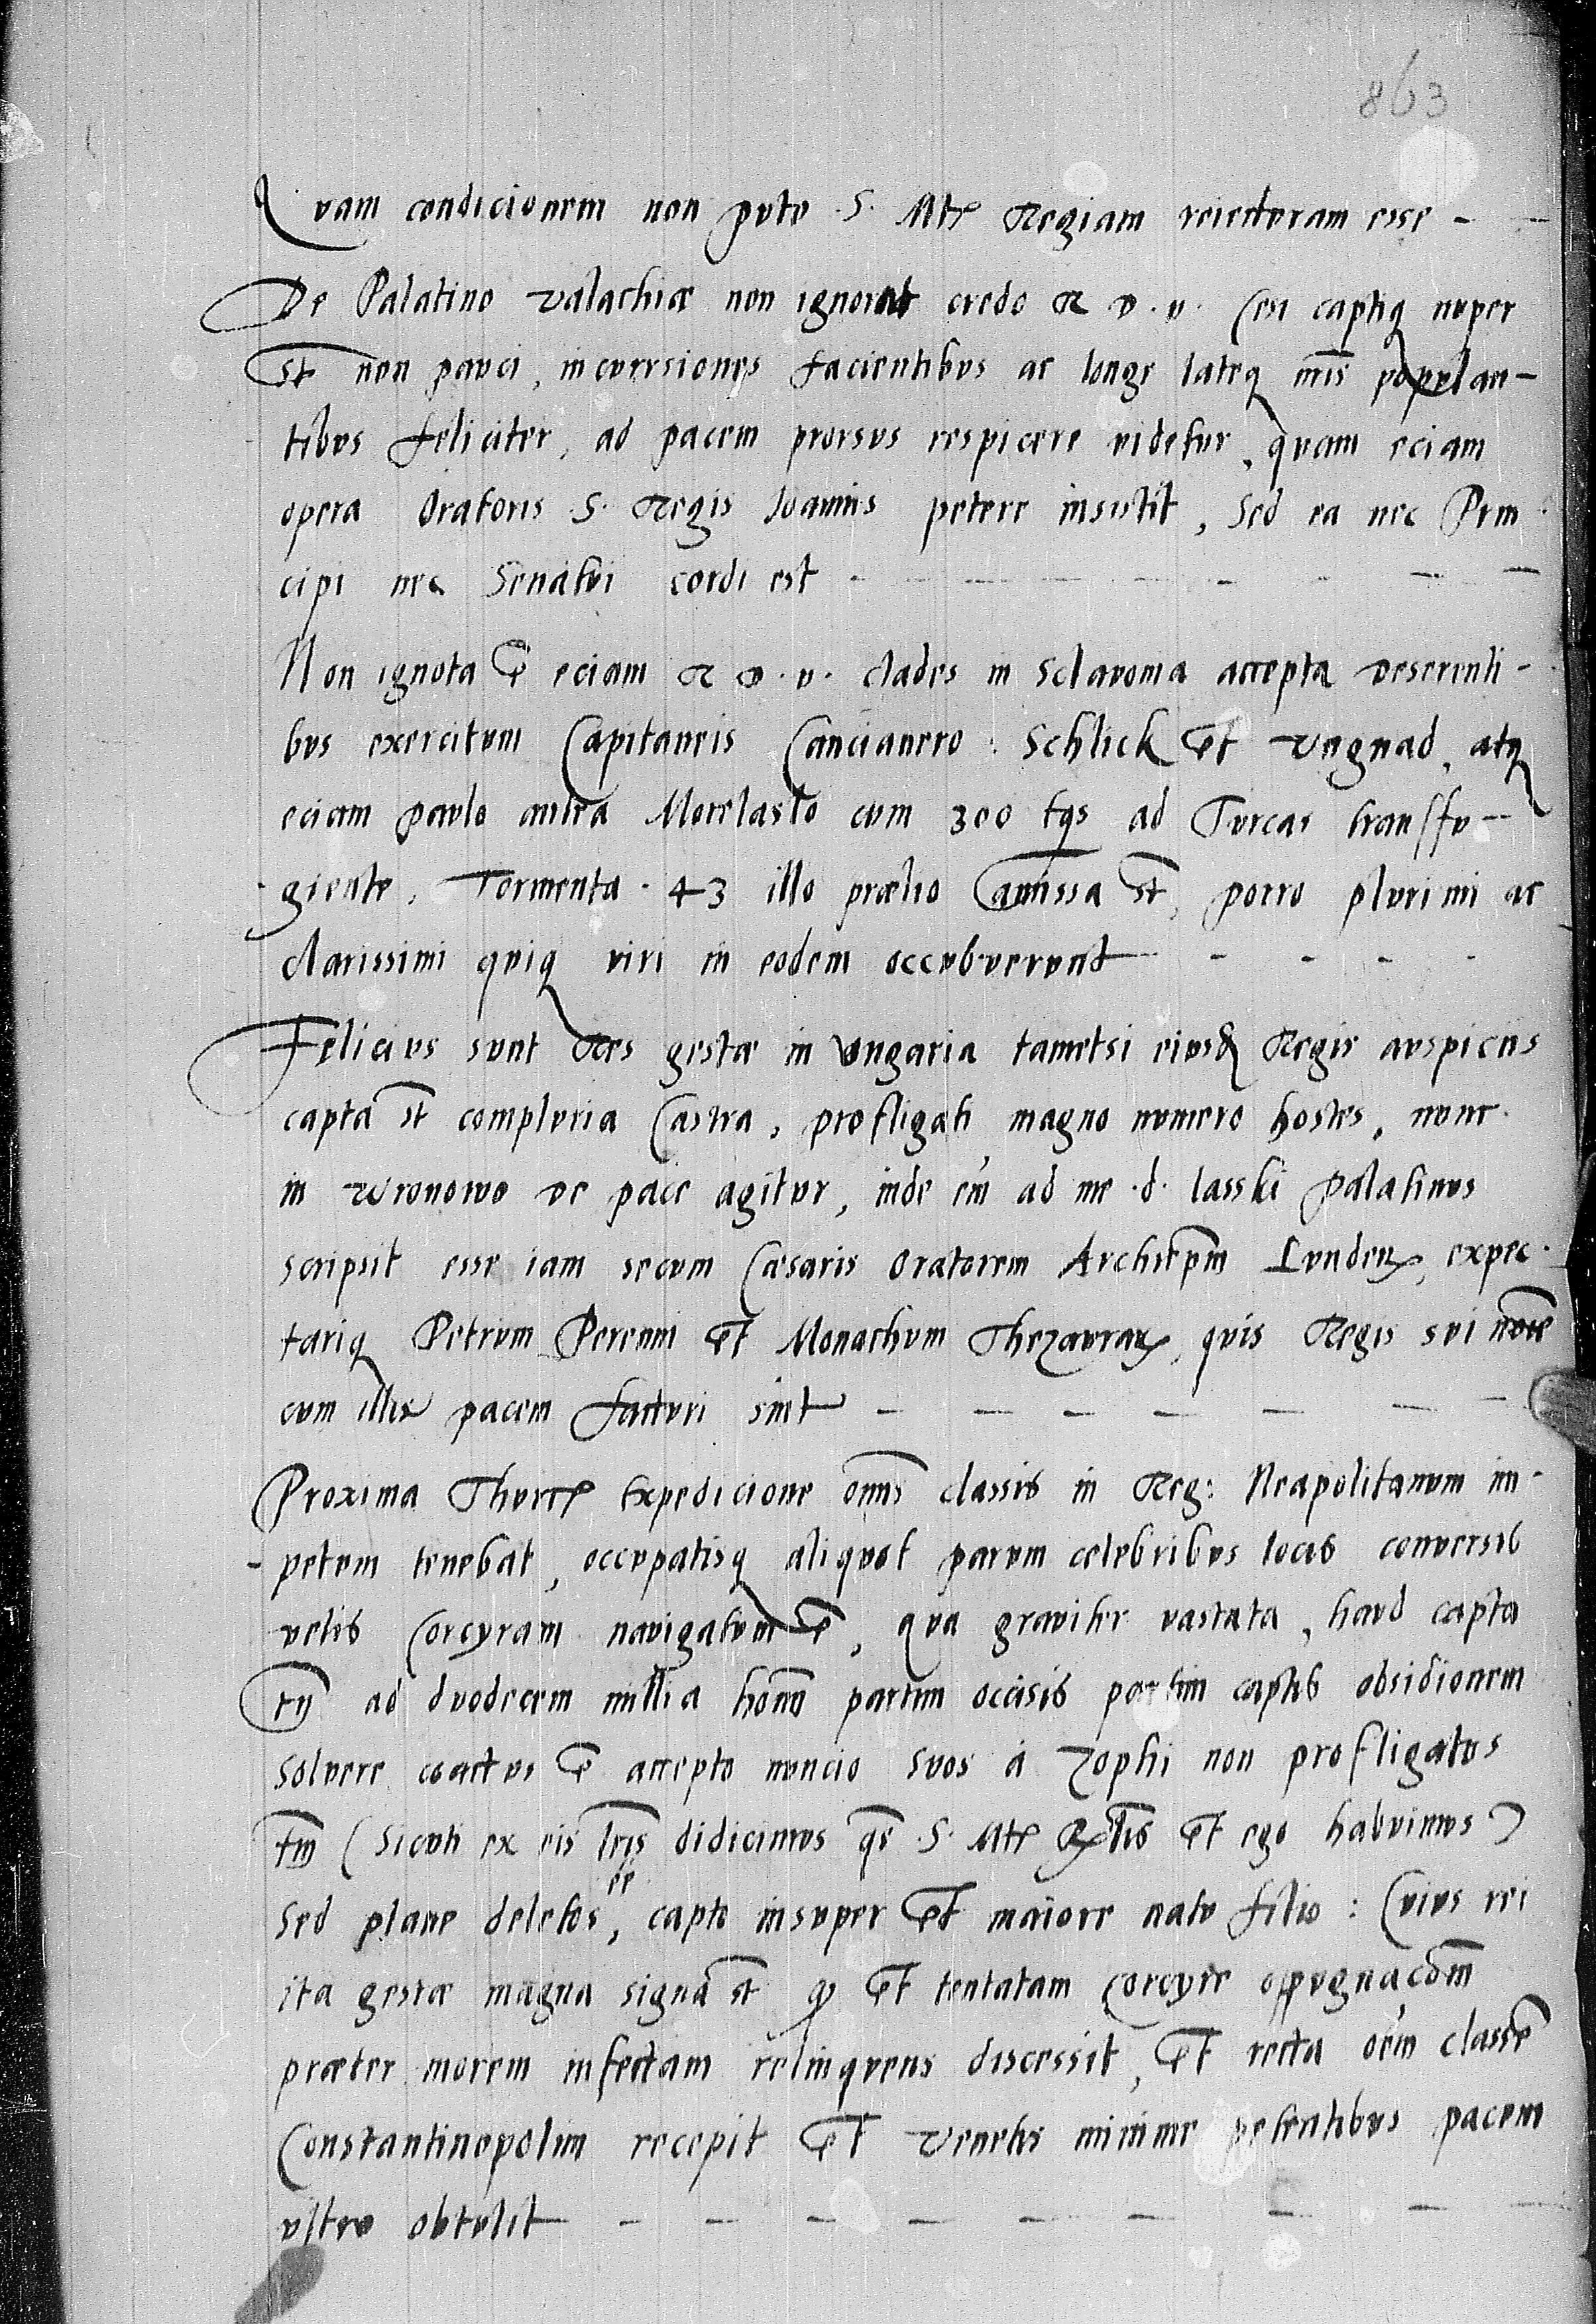 863
Quam condicionem non puto S. Mtē Regiam reiecturam esse –
De Palatino Valachiæ non ignorat credo R D. v. Cesi captiq nuper
st non pauci, incurrsiones facientibus ac longe lateq nris populan–
tibus feliciter, ad pacem prorsus respicere videtur, quam eciam
opera Oratoris S. Regis Ioannis petere insistit, Sed ea nec Prin
cipi nec Senatui cordi est
Non ignota ē eciam R D. v. clades in Sclavonia accepta deserenti–
bus exercitum Capitaneis Cancianero Schlick et Ungnad, atq
eciam paulo antea Morelasto cum 300 eqs ad Turcas transffu–
giente, Tormenta 43 illo prælio amissa st, porro plurimi ac
clarissimi quiq viri in eodem occubuerunt
Felicius sunt Res gestæ in Vngaria tametsi eiusd Regis auspiciis
capta st compluria Castra, profligati magno numero hostes, nunc
in Wronowo de pace agitur, inde em ad me d. Lasski Palatinus
scripsit esse iam secum Cæsaris Oratorem Archiepm Lunden, expec
tariq Petrum Perenni et Monachum Thezaurar, quis Regis sui noie
cum illis pacem facturi sint
Proxima Thurcę Expedicione omis classis in Reg: Neapolitanum im–
petum tenebat, occupatisq aliquot parum celebribus locis conversis
velis Corcyram navigatum ē, qua graviter vastata, haud capta
tn ad duodecem millia homn partim occisis partim captis obsidionem
solvere coactus ē accepto nuncio suos à Zophi non profligatos
tm (Sicuti ex eis lris didicimus qs S. Mtę Rlis et ego habuimus)
Sed plane deletos ee, capto insuper et maiore natu filio: Cuius rei
ita gestæ magna signa st q et tentatam Corcyre oppugnacōm
præter morem infectam relinquens discessit, et recta oem classē
Constantinopolim recepit et Venetis minime petentibus pacem
ultro obtulit